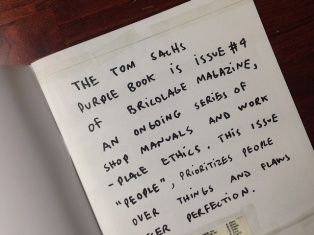 THE TOM SACHS
PURPLE BOOK IS ISSUE #4
OF BRICOLAGE MAGAZINE,
AN ONGOING SERIES OF
SHOP MANUALS AND WORK
-PLACE ETHICS. THIS ISSUE
"PEOPLE", PRIORITIZES PEOPLE
OVER THINGS AND FLAWS
OVER PERFECTION.